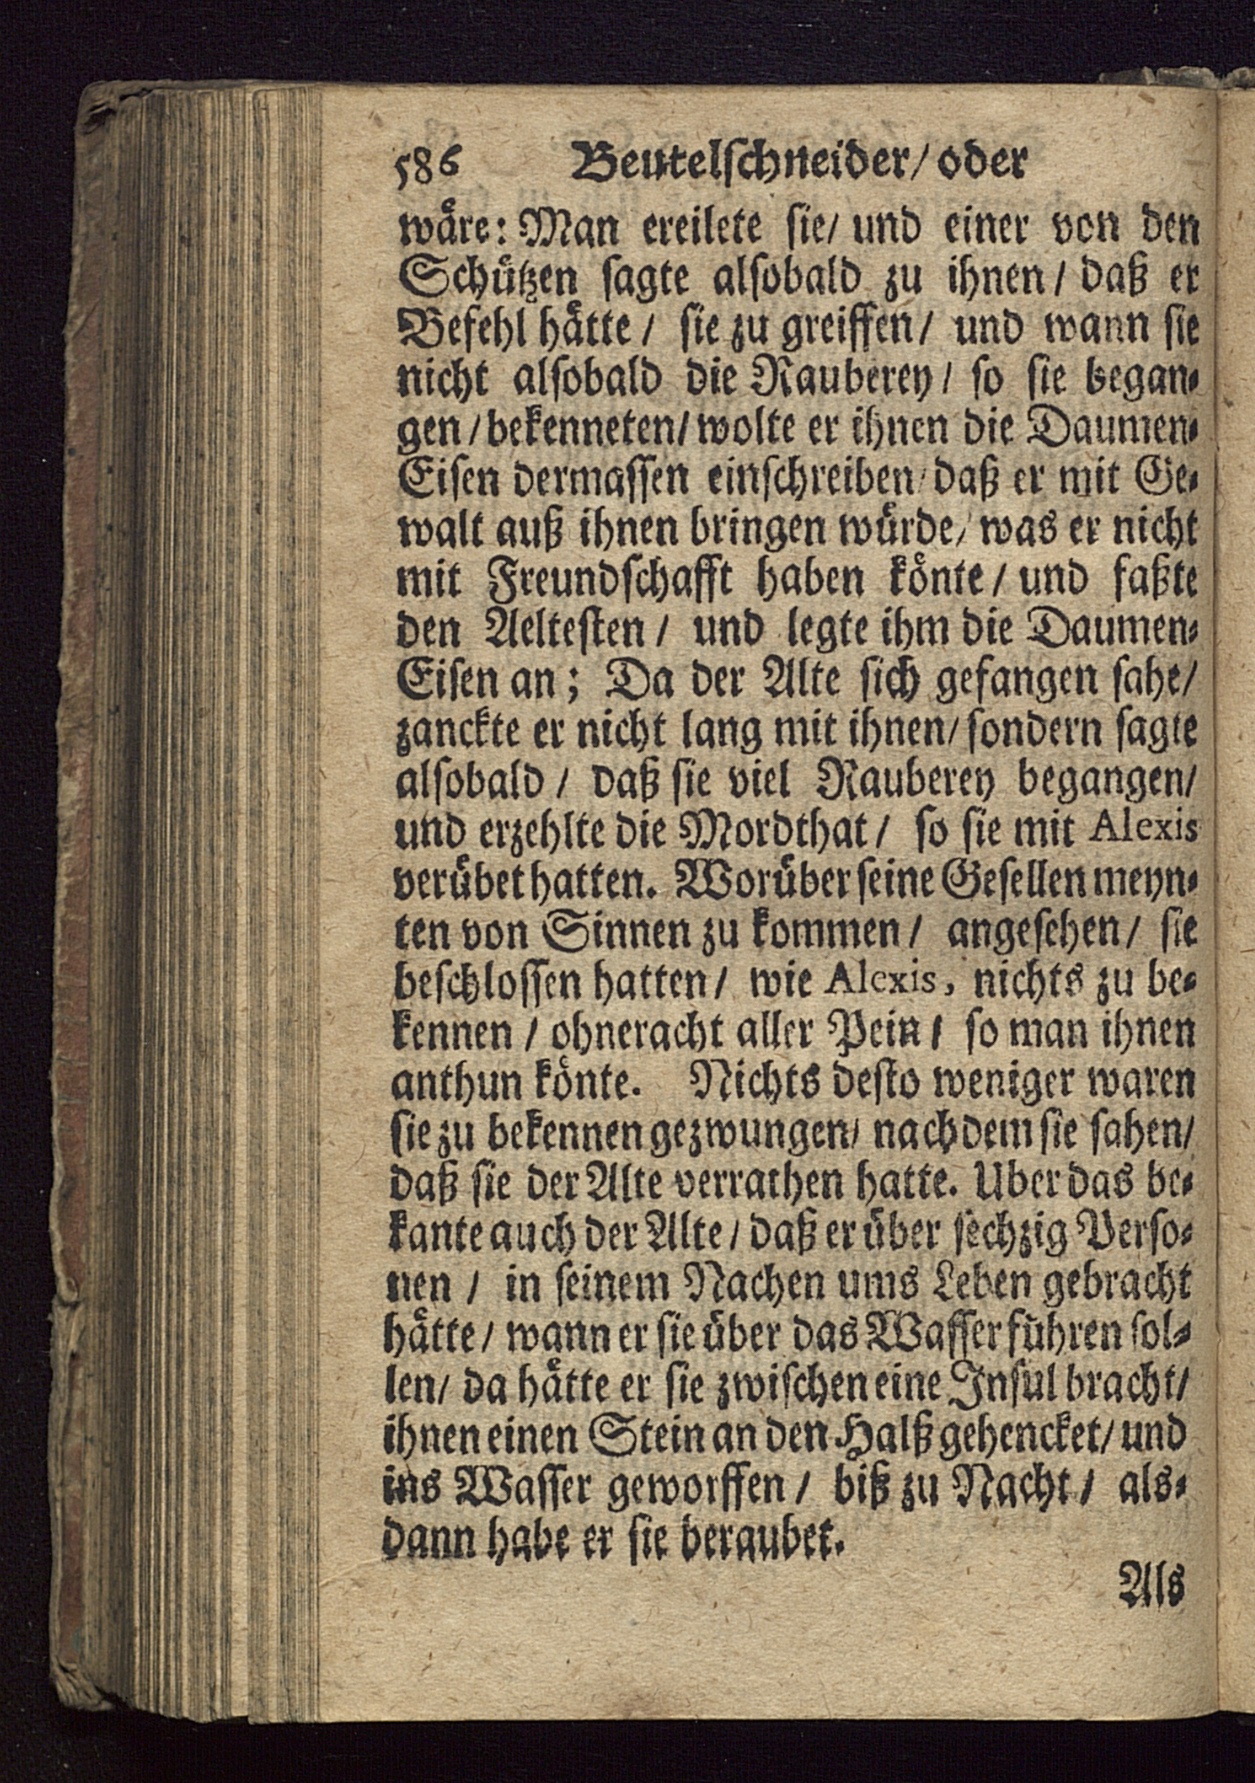 586 Beutelschneider/ oder
wäre: Man ereilete sie/ und einer von den
Schützen sagte alsobald zu ihnen / daß er
Befehl hätte / sie zu greiffen / und wann sie
nicht alsobald die Rauberey / so sie began-
gen / bekenneten / wolte er ihnen die Daumen-
Eisen dermassen einschreiben / daß er mit Ge-
walt auß ihnen bringen würde / was er nicht
mit Freundschafft haben könte / und faßte
den Aeltesten / und legte ihm die Daumen-
Eisen an; Da der Alte sich gefangen sahe /
zanckte er nicht lang mit ihnen / sondern sagte
alsobald / daß sie viel Rauberey begangen /
und erzehlte die Mordthat / so sie mit Alexis
verübet hatten. Worüber seine Gesellen meyn-
ten von Sinnen zu kommen / angesehen / sie
beschlossen hatten / wie Alexis, nichts zu be-
kennen / ohneracht aller Pein / so man ihnen
anthun könte. Nichts desto weniger waren
sie zu bekennen gezwungen / nachdem sie sahen /
daß sie der Alte verrathen hatte. Uber das be-
kante auch der Alte / daß er über sechzig Perso-
nen / in seinem Nachen ums Leben gebracht
hätte / wann er sie über das Wasser führen sol-
len / da hätte er sie zwischen eine Insul bracht /
ihnen einen Stein an den Halß gehencket / und
ins Wasser geworffen / biß zu Nacht / als-
dann habe er sie beraubet.
Als